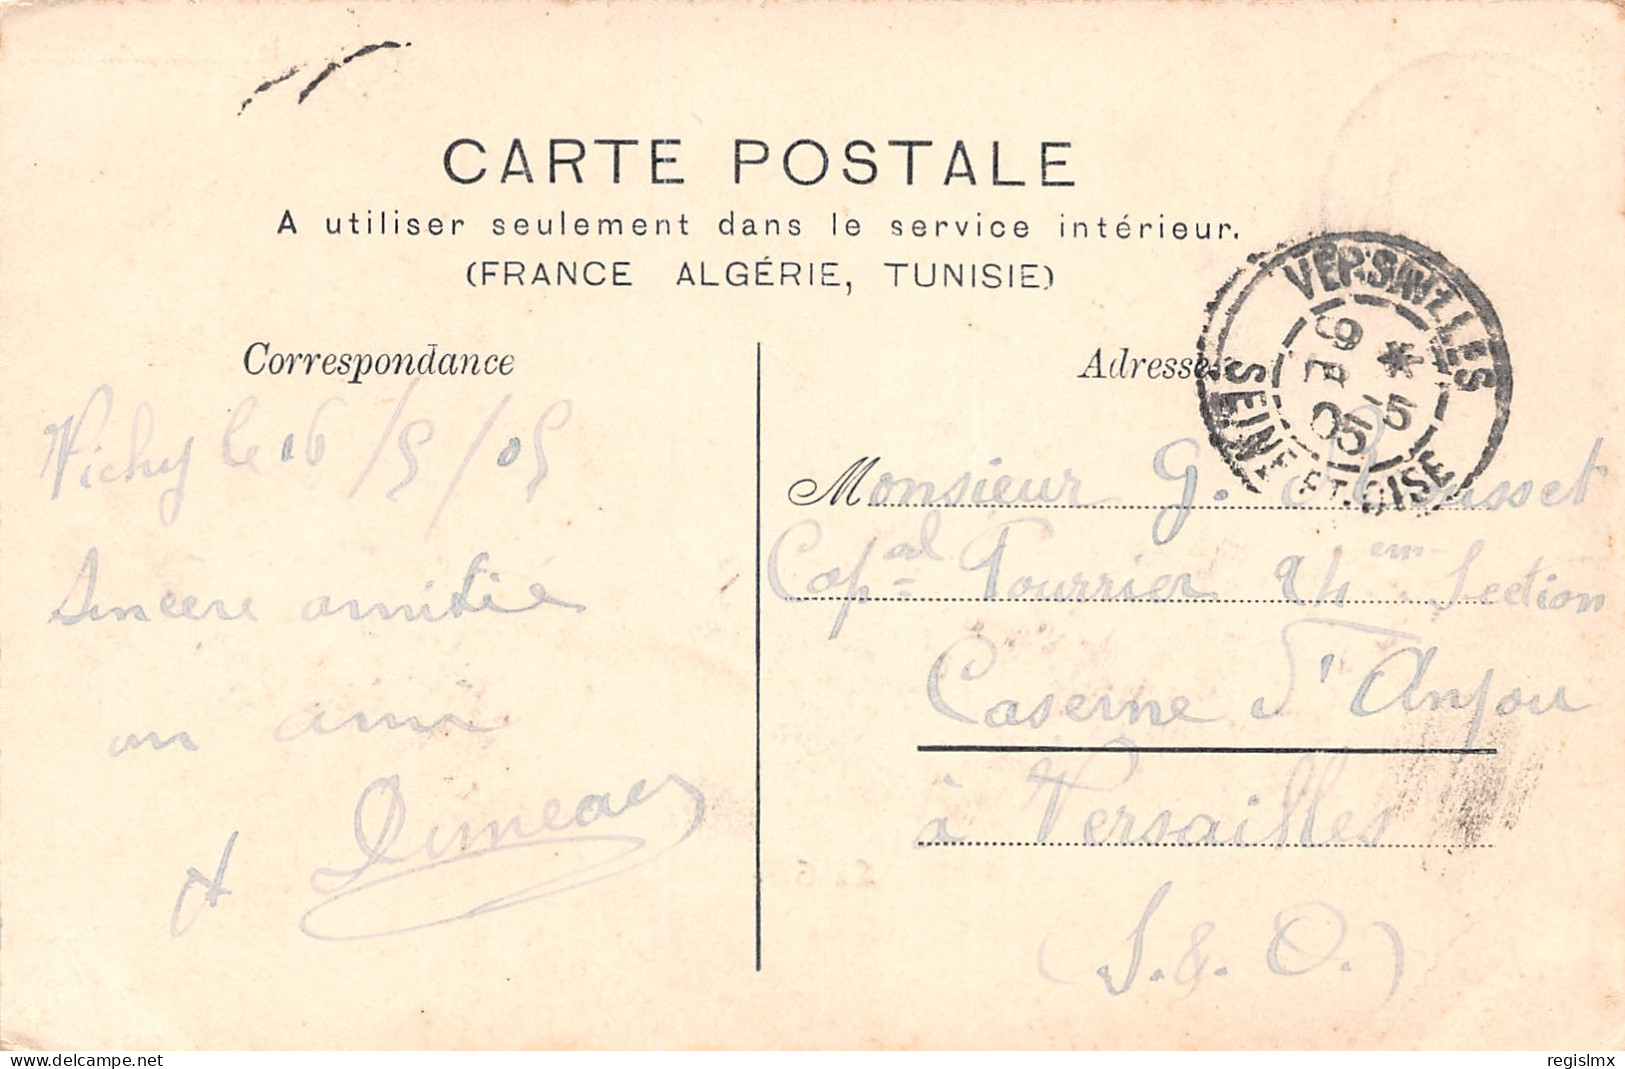 CARTE POSTALE
A utiliser seulement dans le service intérieur.
(FRANCE ALGÉRIE, TUNISIE)
Correspondance
Vichy le 16/5/05
Sincère amitié
un ami
Adresse
Monsieur G.
Cap^al Fourrier 24^em Section
Caserne d'Anjou
à Versailles
(S. & O.)
VERSAILLES
SEINE ET-OISE
05
delcampe.net
regislmx